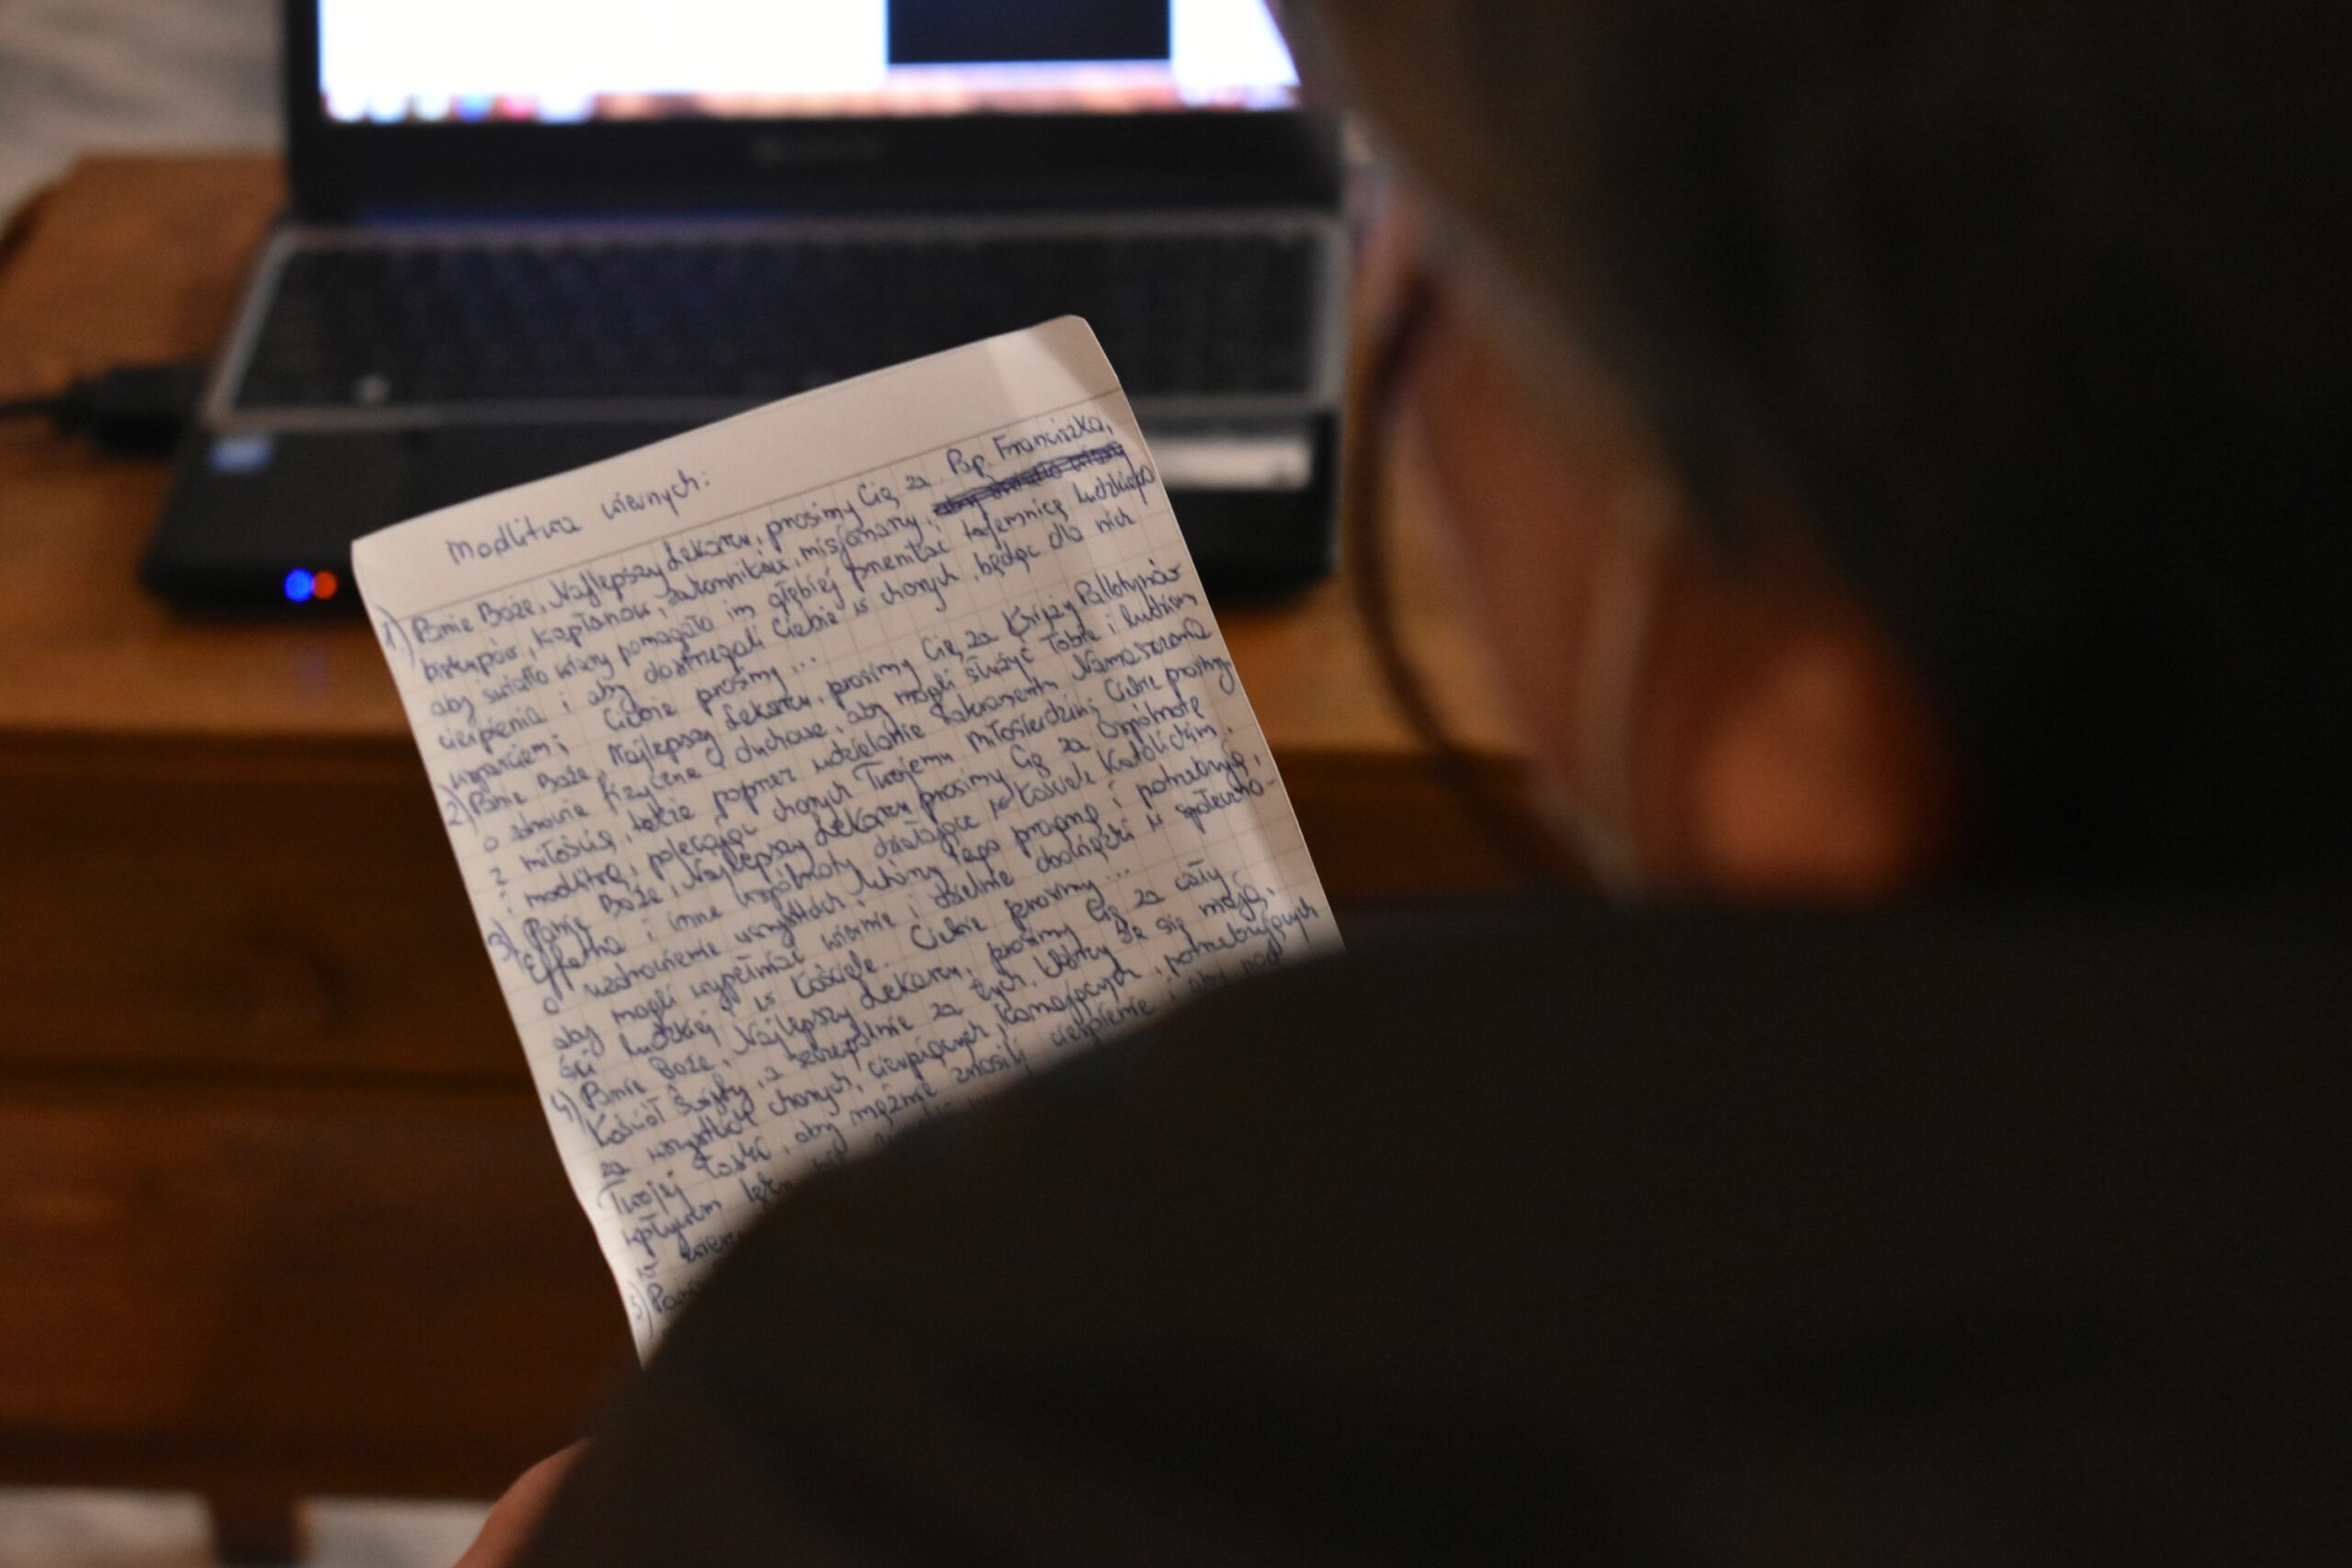 Modlitwa wiernych:
1) Panie Boże, Najlepszy Lekarzu, prosimy Cię za Pp. Franciszka,
biskupów, kapłanów, zakonników, misjonarzy,
aby światło wiary pomagało im głębiej przenikać tajemnicę ludzkiego
cierpienia i aby dostrzegali Ciebie w chorych, będąc dla nich
wsparciem; Ciebie prosimy...
2) Panie Boże Najlepszy Lekarzu, prosimy Cię za Księży Pallotynów
o zdrowie fizyczne i duchowe, aby mogli służyć Tobie i ludziom
z miłością, także poprzez udzielanie Sakramentu Namaszczenia
i modlitwę, polecając chorych Twojemu miłosierdziu; Ciebie prosimy
3) Panie Boże, Najlepszy Lekarzu prosimy Cię za Wspólnotę
Effatha i inne wspólnoty działające w Kościele Katolickim,
o uzdrowienie wszystkich, którzy tego pragną i potrzebują,
aby mogli wypełniać wiernie i dzielnie obowiązki w społeczno-
ści ludzkiej i w Kościele. Ciebie prosimy...
4) Panie Boże, Najlepszy Lekarzu, prosimy Cię za cały
Kościół Święty, a szczególnie za tych, którzy źle się mają,
za wszystkich chorych, cierpiących, konających, potrzebujących
Twojej łaski, aby mężnie znosili cierpienie i aby pod
wpływem
w
5)